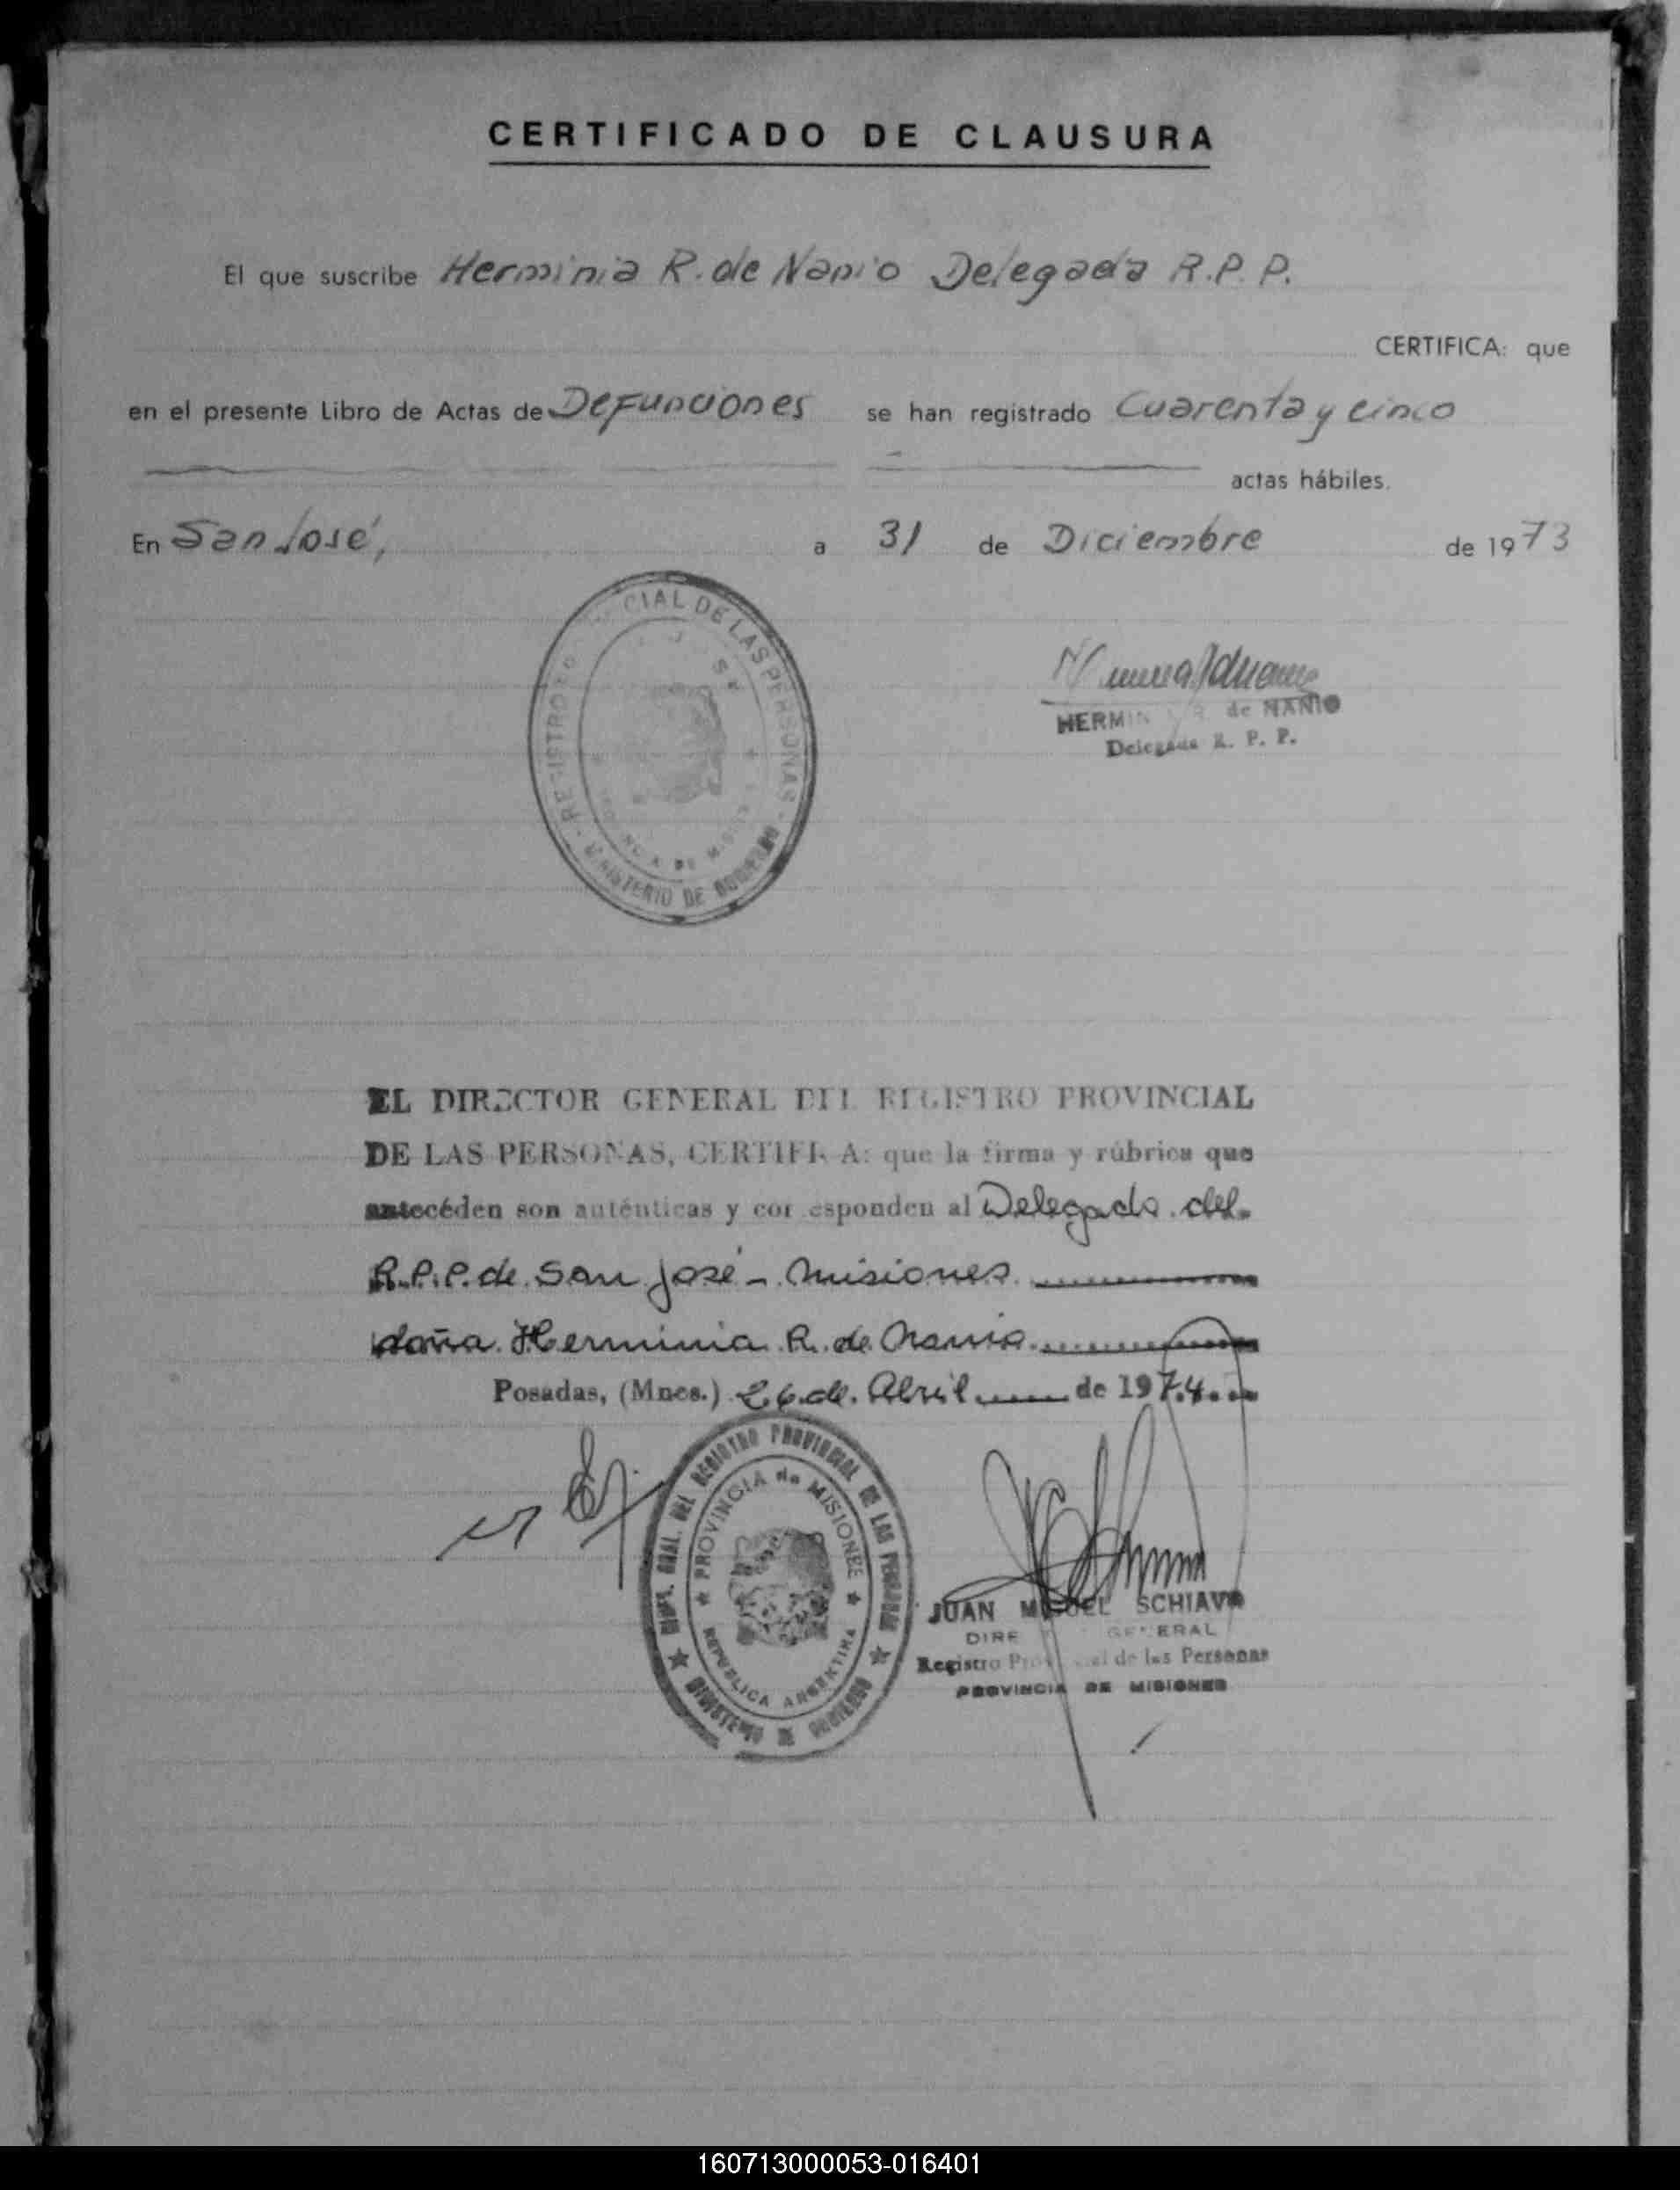 CERTIFICADO DE CLAUSURA
El que suscribe Herminia R. de Nanio Delegada R.P.P.
CERTIFICA: que
en el presente Libro de Actas de Defunciones se han registrado Cuarenta y cinco
actas hábiles.
En San José, a 31 de Diciembre de 1973
CIAL DE LAS PERSONAS
MINISTERIO DE GOBIERNO
HERMIN R. de NANIO
Delegada R. P. P.
EL DIRECTOR GENERAL DEL REGISTRO PROVINCIAL
DE LAS PERSONAS, CERTIFICA: que la firma y rúbrica que
anteceden son auténticas y corresponden al Delegado del
R.P.P. de San José - Misiones
doña Herminia R. de Nanio
Posadas, (Mnes.) 26 de Abril de 1974
DIRE. GRAL. DEL REGISTRO PROVINCIAL DE LAS PERSONAS
PROVINCIA de MISIONES
REPUBLICA ARGENTINA
MINISTERIO DE GOBIERNO
JUAN MIGUEL SCHIAVO
DIRECTOR GENERAL
Registro Provincial de las Personas
PROVINCIA DE MISIONES
160713000053-016401